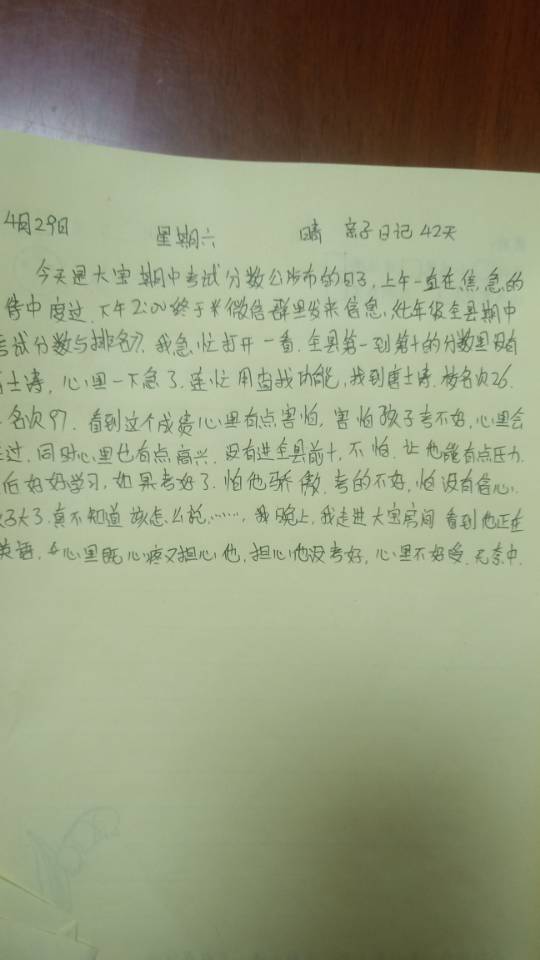 4月29日 星期六 晴 亲子日记42天
今天是大宝期中考试分数公布的日子,上午一直在焦急的
待中度过.下午2:00终于来微信群里发来信息,年级全县期中
考试分数与排名了.我急忙打开一看.全县第一到第十的分数里没有
士诗,心里一下急了.连忙用查找功能,找到唐士诗.校名次26.
名次97.看到这个成责心里有点害怕,害怕孩子考不好,心里会
过,同时心里也有点高兴.没有进全县前十,不怕.让他能有点压力.
后好好学习,如果考好了.怕他骄傲.考的不好,怕没有信心.
大了.真不知道该怎么说,……,我晚上,我走进大宝房间看到他正在
英语.心里既心疼又担心他,担心他没考好,心里不好受.无奈中.